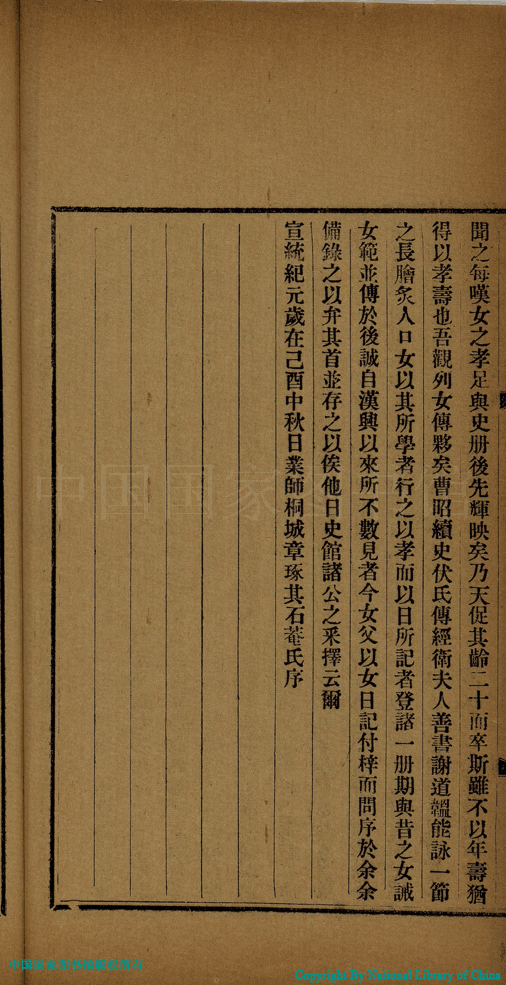 聞之每嘆女之孝足與史册後先輝映矣乃天促其齡二十而卒斯雖不以年壽猶
得以孝壽也吾觀列女傳夥矣曹昭續史伏氏傳經衛夫人善書謝道韞能詠一節
之長膾炙人口女以其所學者行之以孝而以日所記者登諸一册期與昔之女誡
女範並傳於後誠自漢興以來所不數見者今女父以女日記付梓而問序於余余
備錄之以弁其首並存之以俟他日史館諸公之采擇云爾
宣統紀元歲在己酉中秋日業師桐城章琢其石菴氏序
中国国家图书馆版权所有
Copyright By National Library of China